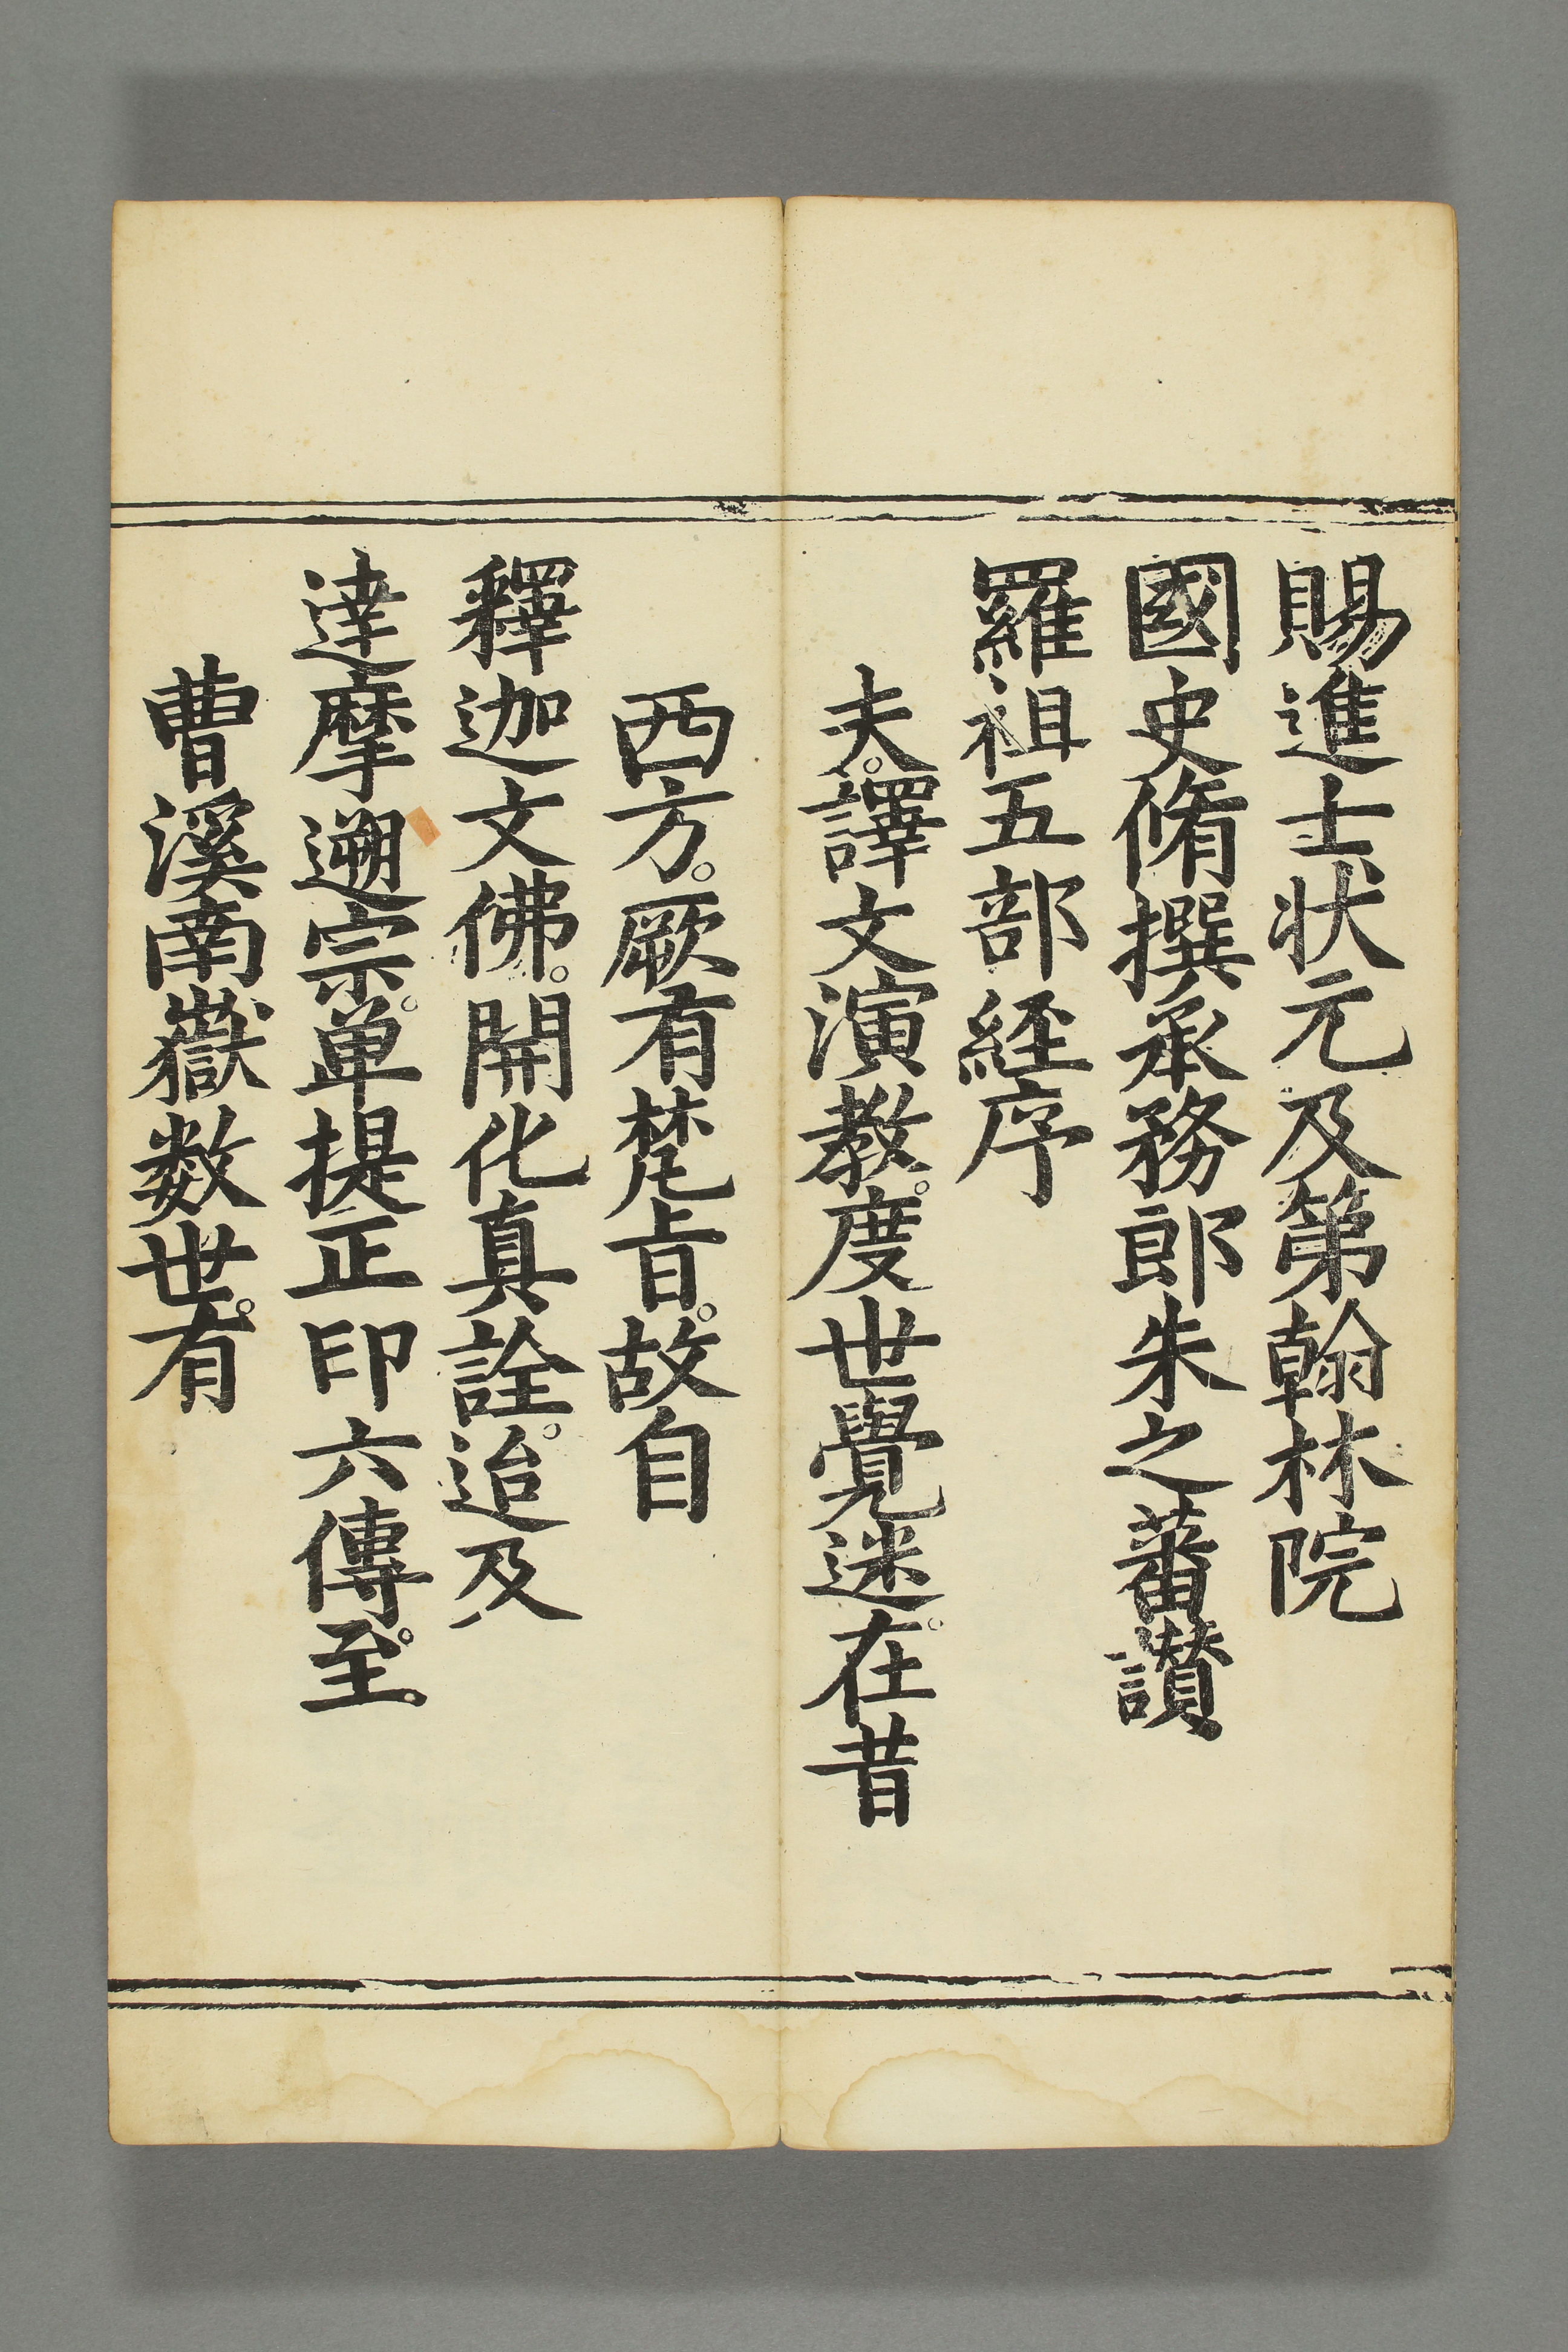 賜進士狀元及第翰林院
國史脩撰承務郎朱之蕃讃
羅祖五部経序
夫。譯文演教。度世覺迷。在昔
西方。厥有梵㫖。故自
釋迦文佛。開化真詮。迨及
達摩遡宗。单提正印六傳。至。
曹溪南嶽数世。有